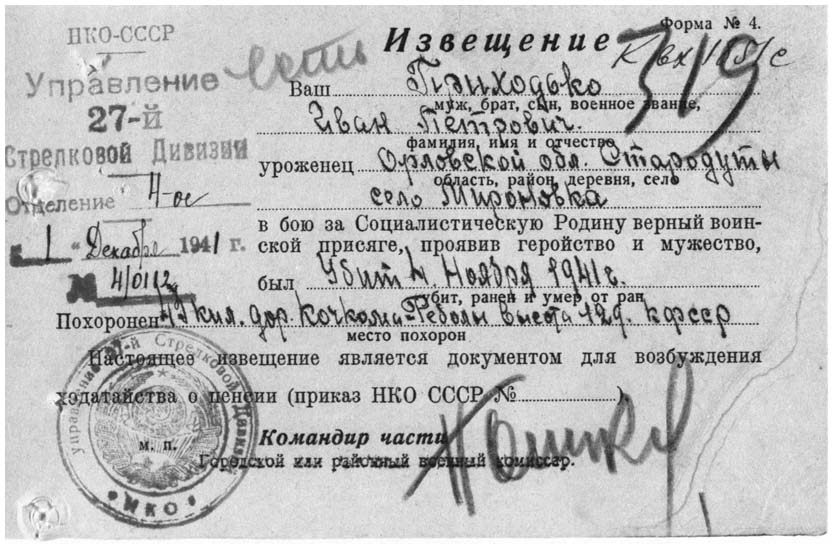 Форма № 4.
НКО-СССР
Управление
27-й
Стрелковой Дивизии
Отделение 4-ое
„1“ Декабря 1941 г.
№ 4/0112
есть
Извещение
319
К вх
Ваш Приходько
муж, брат, сын, военное звание,
Иван Петрович.
фамилия, имя и отчество
уроженец Орловской обл. Стародубы
область, район, деревня, село
село Мироновка
в бою за Социалистическую Родину верный воин-
ской присяге, проявив геройство и мужество,
был Убит 4. Ноября 1941 г.
убит, ранен и умер от ран
Похоронен кил. дор. Кочкома-Реболы высота кфсср
место похорон
Настоящее извещение является документом для возбуждения
ходатайства о пенсии (приказ НКО СССР № ).
Командир части
Городской или районный военный комиссар.
м. п.
управление 27-й Стрелковой Дивизии
НКО